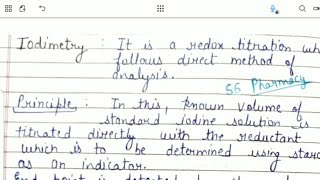 Iodimetry : It is a redox titration
follows direct method of
analysis.
SG Pharmacy
Principle : In this, known volume of
standard iodine solution is
titrated directly with the reductant
which is to be determined using
as an indicator.
End point is detected